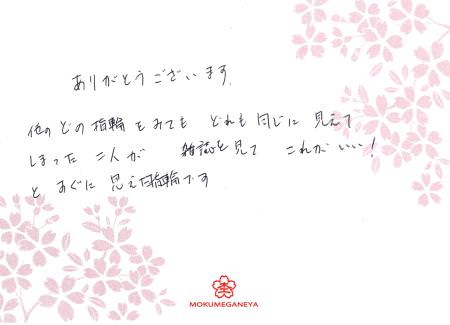 ありがとうございます。
他のどの指輪をみても どれも同じに見えて
しまった二人が 雑誌を見て これがいい!
とすぐに思えた指輪です
MOKUMEGANEYA